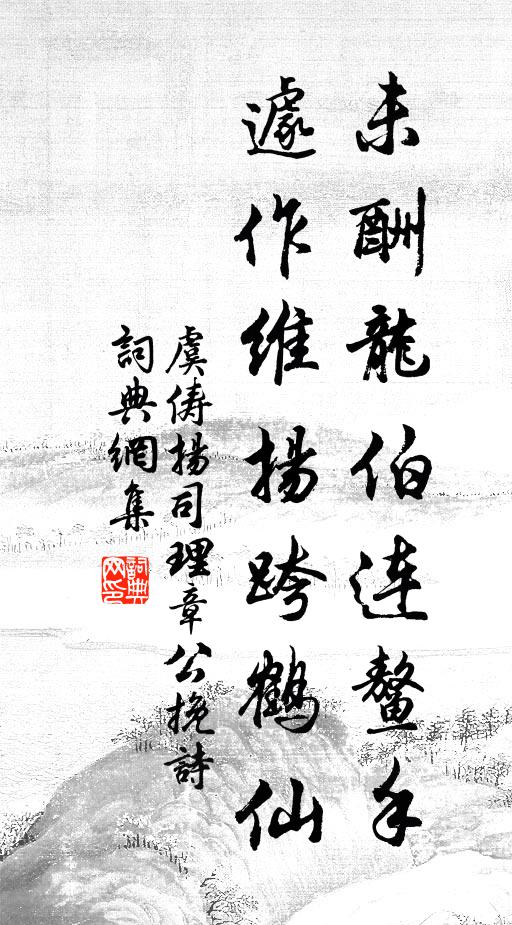 未酬龍伯連鼇手
遽作維揚跨鶴仙
虞儔揚司理章公挽詩
詞典網集
詞典網印